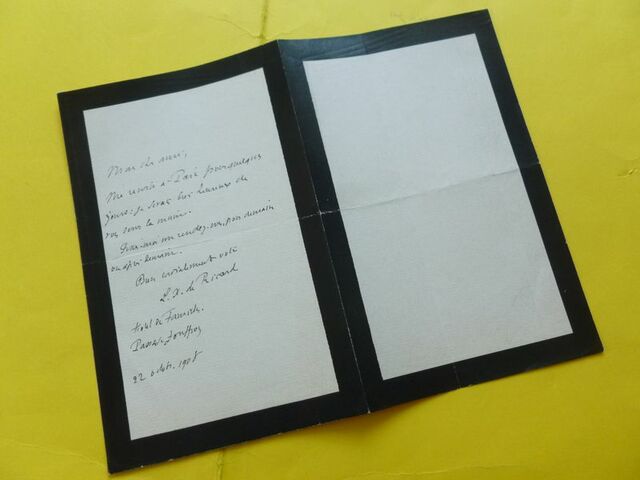 Mon cher ami,
Me voici à Paris pour quelques
jours. Je serais très heureux de
vous serrer la main.
Fixez-moi un rendez-vous, pour demain
ou après demain.
Bien cordialement votre
L. X. de Ricard
Hôtel de Famille.
Passage Jouffroy
22 octob. 1908